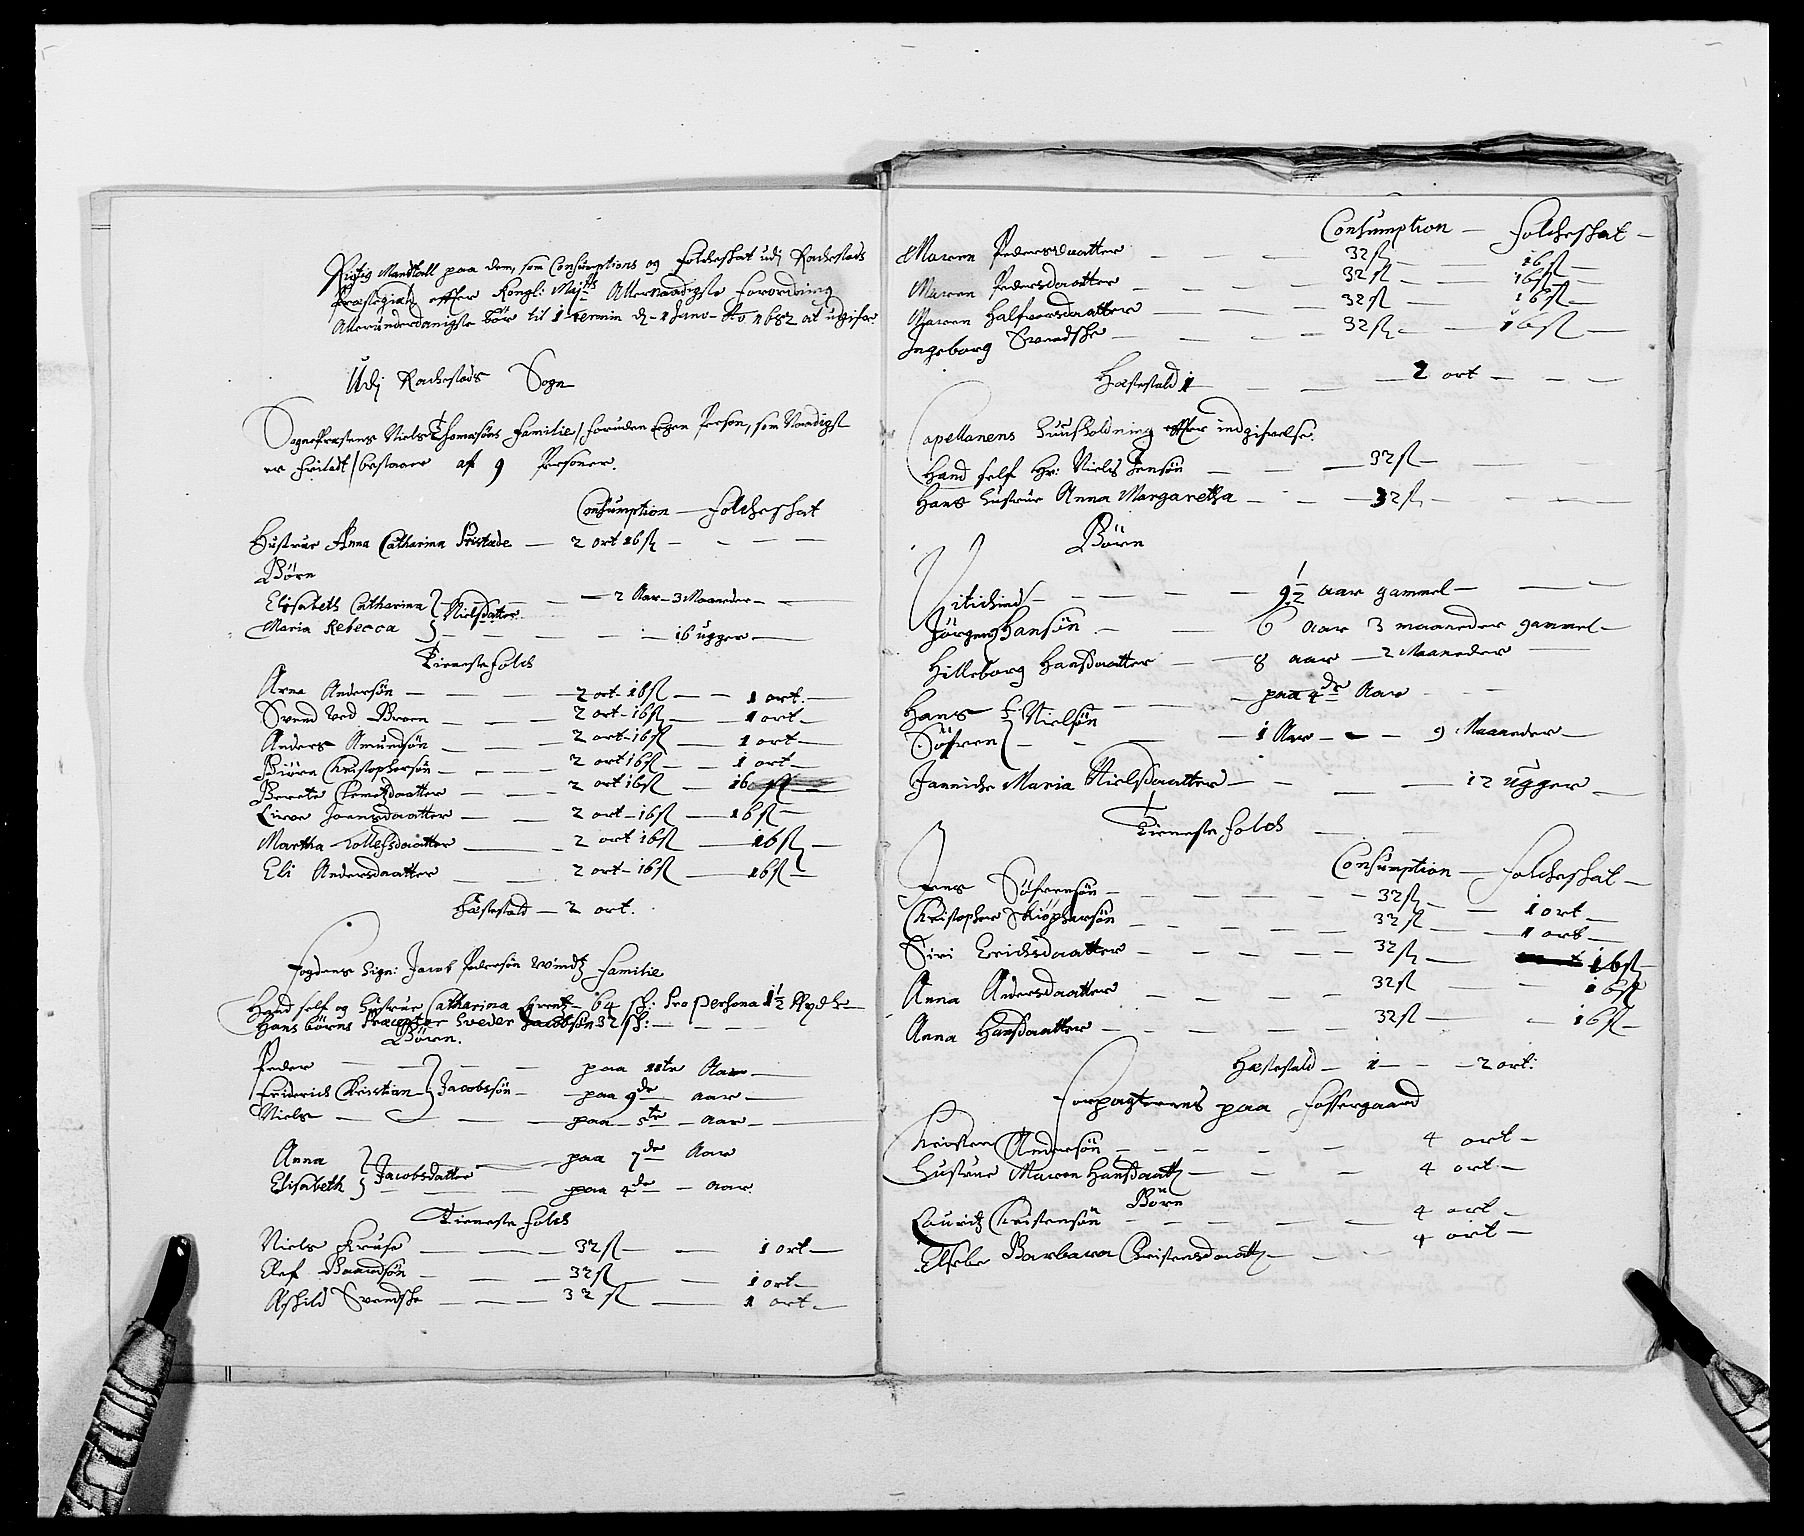 Rigtig Mandtall paa dem, som Consumptions og Folcheskat udj Rachestads
Præstegield effter Kongl: Maj:ts Allernaadigste Forordning
Allerunderdanigste bør til 1 Termin d. 1 Janv. Ao. 1682 at udgifve.
Udj Rachestads Sogn
Sognepræstens Niels Thomæsøns Familie / foruden Egen Person, som Naadigst
er fritadt / bestaaer af 9 Personer.
Consumption — Folcheskat
Hustrue Anna Catharina Fristade — 2 ort 16 sk — — — —
Børn
Elisabeth Catharina } Nielsdatter — — 2 Aar — 3 Maaneder — —
Maria Rebecca } — — — — 16 ugger —
Tieneste Folch
Arne Andersøn — — — 2 ort — 16 sk — — 1 ort —
Svend ved Broen — — — 2 ort — 16 sk — 1 ort —
Anders Amundsøn — — — 2 ort — 16 sk — 1 ort —
Biørn Christophersøn — — — 2 ort 16 sk — — 1 ort —
Berete — — 2 ort 16 sk — 16 sk
Live Joensdaatter — — 2 ort — 16 sk — 16 sk —
Martha Tollefsdaatter — — 2 ort 16 sk — 16 sk —
Eli Andersdaatter — — 2 ort — 16 sk — 16 sk —
Hæstestald — 2 ort.
Fogdens Sign: Jacob Pedersøn Windtz Familie
Hand self og Hustrue Catharina — 64 sk: Pro Persona 1½ Rixd
Hans børns Præceptor Sveder Jacobsøn 32 sk: — — —
Børn.
Peder — — — paa 11te Aar —
Friderich Christian } Jacobsøn — paa 9de aar —
Niels — — — paa — 5te — aar —
Anna } Jacobsdatter — — paa 7de Aar
Elisabeth } — — — paa 4de — aar.
Tieneste Folch
Niels Kruse — — — 32 sk — — 1 ort —
Olef Baardsøn — — — 32 sk — — 1 ort —
Askild Svendske — — — 32 sk — — 1 ort —
Consumption — Folcheskat —
Maren Pedersdaatter — — — 32 sk — — 16 sk —
Maren Pedersdaatter — — — 32 sk — — 16 sk —
Maren Halfvorsdaatter — — — 32 sk — — 16 sk —
Ingeborg Svendske — — — 32 sk — — 16 sk —
Hæstestald 1 — — — 2 ort — — —
Capellanens Huusholdning effter indgifvelse.
Hand self Hr: Niels Jensøn — — — 32 sk — — —
Hans Hustrue Anna Margaretha — — — 32 sk — — —
Børn
Vitichind — — — 9½ aar gammel — — —
Jørgen } Hansøn — — 6 aar 3 maaneder gammel —
Hilleborg Hansdaatter — — 8 aar — 2 Maaneder —
Hans — — — paa 4de Aar — —
Søfren } Nielsøn — — — 1 Aar — — 9 Maaneder —
Janniche Maria Nielsdaatter — — — — 12 ugger —
Tieneste Folch — —
Consumption — Folcheskat —
Jens Søfrensøn — — — 32 sk — — 1 ort —
Christopher — — — 32 sk — — 1 ort —
Siri Erichsdaatter — — — 32 sk — 16 sk —
Anna Andersdaatter — — — 32 sk — — 16 sk
Anna Hansdaatter — — — 32 sk — — 16 sk —
Hæstestald — 1 — — 2 ort.
Forpagterens paa Fossergaard
Christen Andersøn — — — 4 ort —
Hustrue Maren Hansdaatt — — — 4 ort —
Børn
Lauritz Christensøn — — — 4 ort —
Elsebe Barbara Christensdaatt — — — 4 ort —